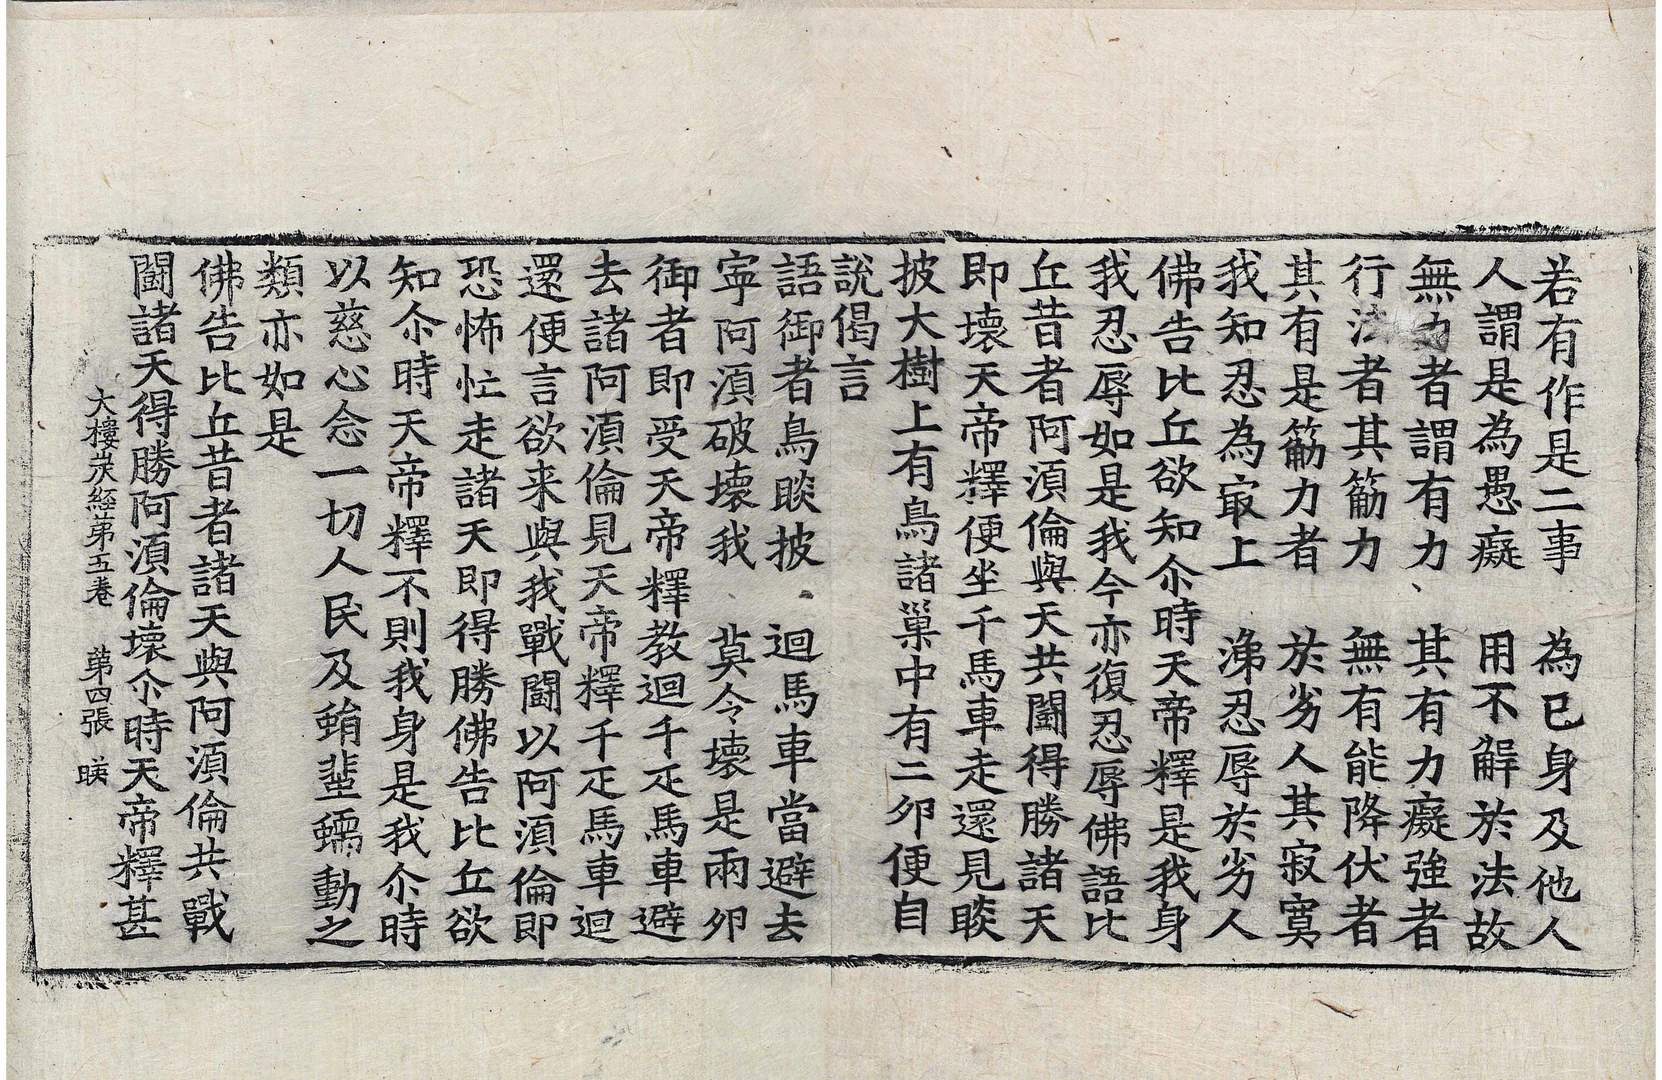 若有作是二事　為已身及他人
人謂是為愚癡　用不解於法故
無力者謂有力　其有力癡強者
行法者其筋力　無有能降伏者
其有是筋力者　於劣人其寂寞
我知忍為冣上　㴑忍辱於劣人
佛告比丘欲知尒時天帝釋是我身
我忍辱如是我今亦復忍辱佛語比
丘昔者阿湏倫與天共鬪得勝諸天
即壞天帝釋便坐千馬車走還見睒
披大樹上有鳥諸巢中有二卵便自
說偈言
語御者鳥睒披　迴馬車當避去
寧阿湏破壞我　莫令壞是兩卵
御者即受天帝釋教迴千疋馬車避
去諸阿湏倫見天帝釋千疋馬車迴
還便言欲来與我戰鬪以阿湏倫即
恐怖忙走諸天即得勝佛告比丘欲
知尒時天帝釋不則我身是我尒時
以慈心念一切人民及蛕蜚蠕動之
類亦如是
佛告比丘昔者諸天與阿湏倫共戰
鬪諸天得勝阿湏倫壞尒時天帝釋甚
大樓炭經第五卷　第四張　暎